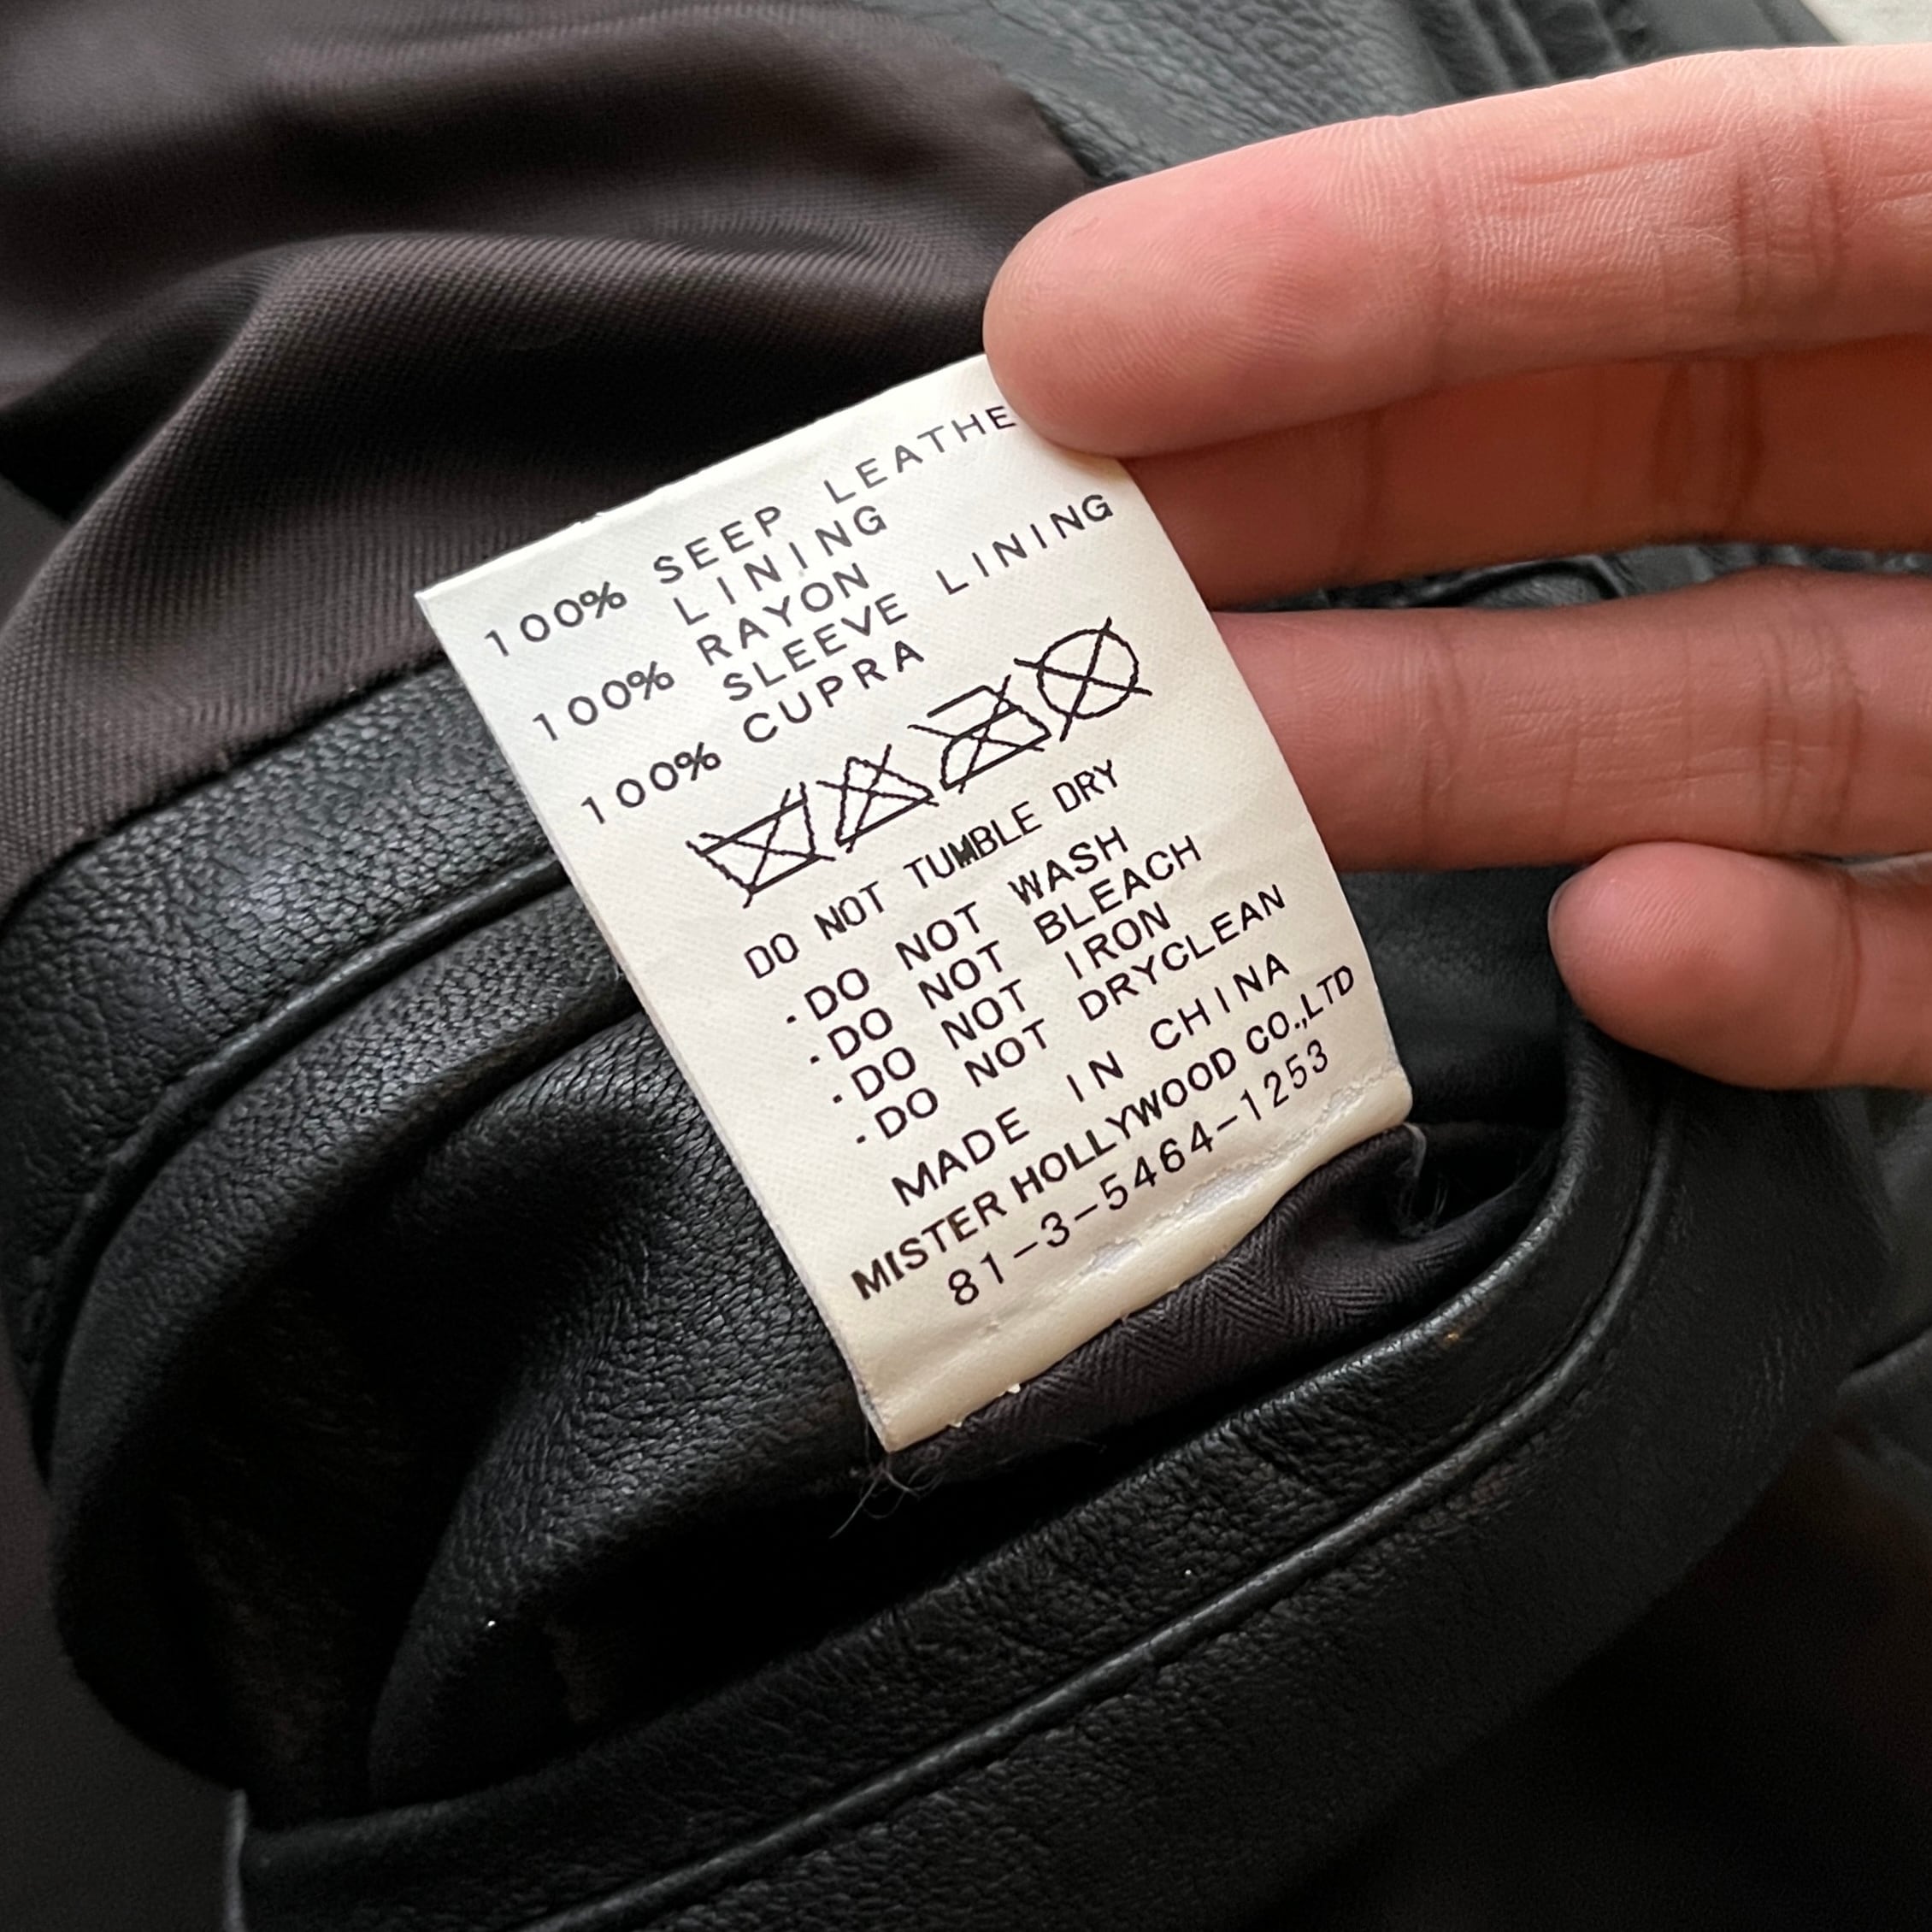 100% SEEP LEATHE
LINING
100% RAYON
SLEEVE LINING
100% CUPRA
DO NOT TUMBLE DRY
·DO NOT WASH
·DO NOT BLEACH
·DO NOT IRON
·DO NOT DRYCLEAN
MADE IN CHINA
MISTER HOLLYWOOD CO.,LTD
81-3-5464-1253